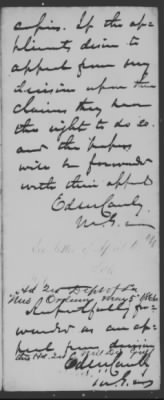 copies. If the ap-
plicants desire to
appeal from my
decision upon their
claims they have
the right to do so
and the papers
will be forwarded
with their appeal
Ed R S Canby
M. G.
Hd. Qrs Dept of La
New Orleans May 5" 1866
Respectfully for-
warded as an ap-
peal from decision
Ed R S Canby
M. G.